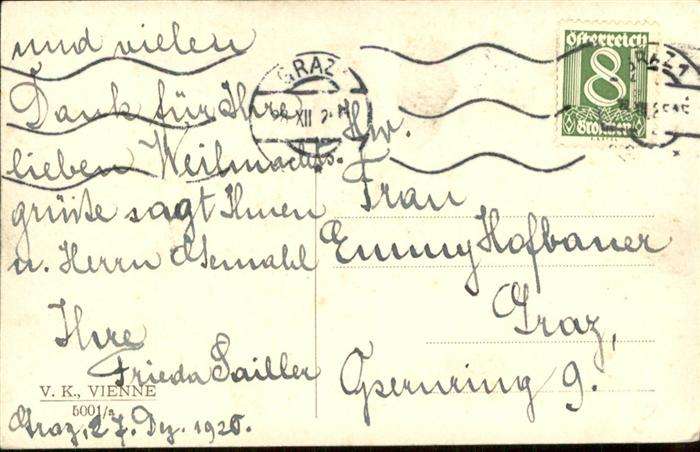 und vielen
Dank für Ihre
lieben Weihnachts-
grüße sagt Ihnen
u. Herrn Gemahl
Ihre
Frieda Sailler
Graz, 27. Dez. 1925.
V. K., VIENNE
5001/a
GRAZ
XII
Österreich
8
Groschen
GRAZ 1
Hw.
Frau
Emmy Hofbauer
Graz,
Opernring 9.